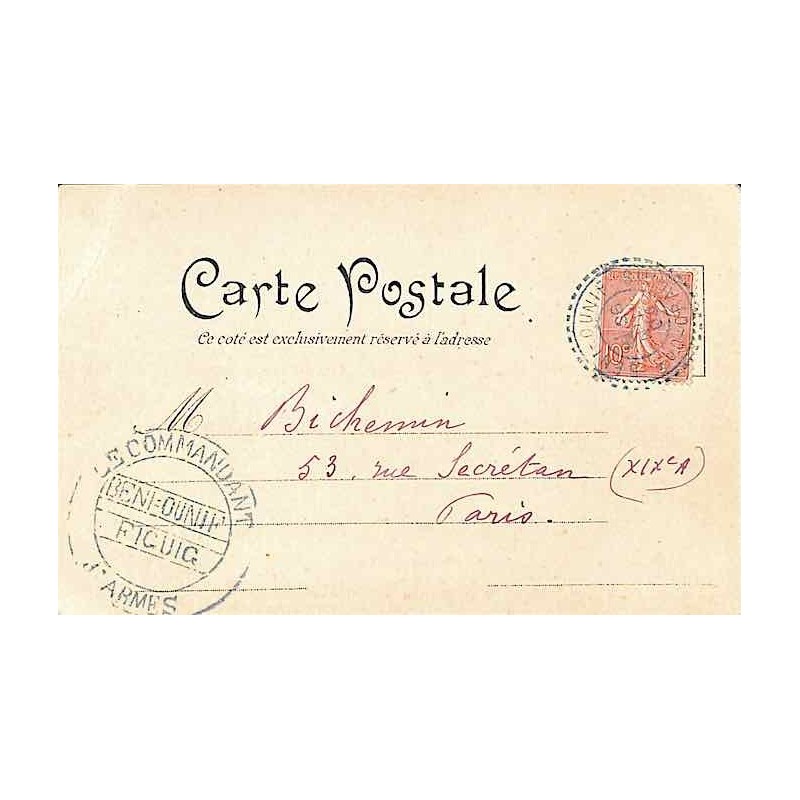 Carte Postale
Ce coté est exclusivement réservé à l'adresse
10c
OUNIF
M Bichemin
53, rue Secrétan (XIXe A)
Paris.
LE COMMANDANT
BENI-OUNIF
FIGUIG
D'ARMES